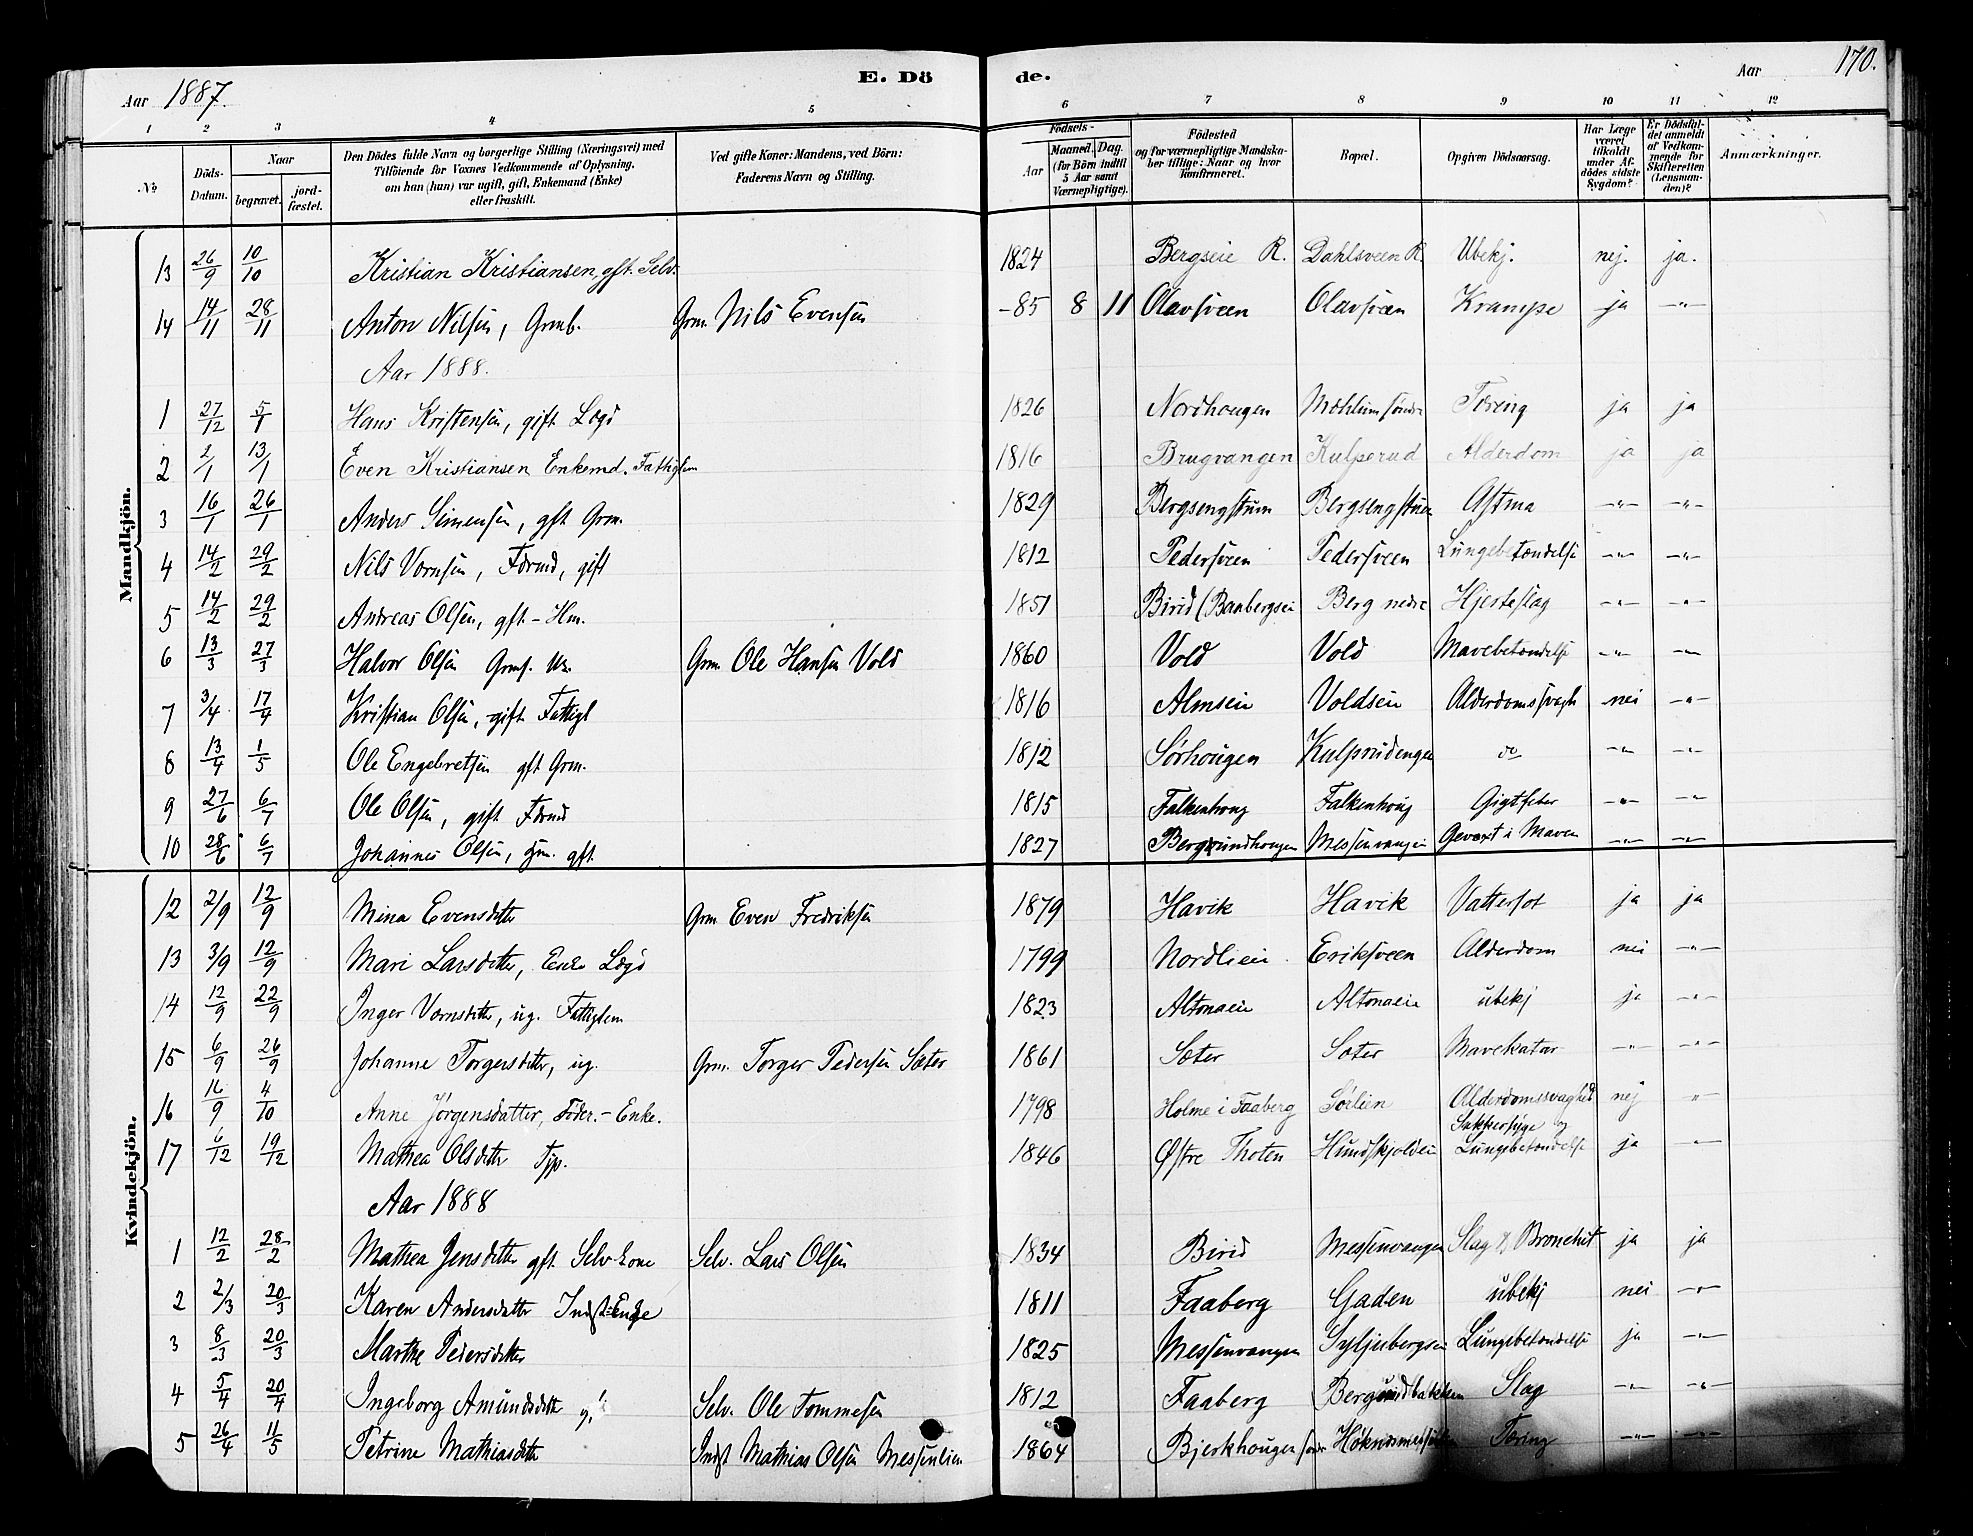 Aar 1887.
E. Döde.
Aar
170.
1 2 3 4 5 6 7 8 9 10 11 12
No
Döds-Datum.
Naar
begravet.
jord-fæstet.
Den Dödes fulde Navn og borgerlige Stilling (Næringsvei) med Tilföiende for Voxnes Vedkommende af Oplysning, om han (hun) var ugift, gift, Enkemand (Enke) eller fraskilt.
Ved gifte Koner: Mandens, ved Börn: Faderens Navn og Stilling.
Födsels-
Aar
Maaned. Dag.
(for Börn indtil 5 Aar samt Værnepligtige).
Födested
og for værnepligtige Mandskaber tillige: Naar og hvor konfirmeret.
Bopæl.
Opgiven Dödsaarsag.
Har Læge været tilkaldt under Afdödes sidste Sygdom?
Er Dödsfaldet anmeldt af Vedkommende for Skifteretten (Lensmanden)?
Anmærkninger.
Mandkjön.
13 26/9 10/10 Kristian Kristiansen, gft. Selv. 1824 Bergseie R. Dahlsveen R. Ubekj. nej. ja.
14 14/11 28/11 Anton Nilsen, Grmb. Grm. Nils Evensen -85 8 11 Olavsveen Olavsveen Krampe ja -"-
Aar 1888.
1 27/12 5/1 Hans Kristensen, gift Lægd 1826 Nordhougen Mæhlum søndre Tæring ja ja
2 2/1 13/1 Even Kristiansen Enkemd. Fattiglem 1816 Brugvangen Kulperud Alderdom ja ja
3 16/1 26/1 Anders Simensen, gft Grm. 1829 Bergsengstuen Bergsengstuen Astma -"- -"-
4 14/2 29/2 Nils Vornsen, Fdrmd, gift 1812 Pedersveen Pedersveen Lungebetændelse -"- -"-
5 14/2 29/2 Andreas Olsen, gft - Hm. 1851 Birid (Baabergseie Berg nedre Hjerteslag -"- -"-
6 13/3 27/3 Halvor Olsen Grms. Grm. Ole Hansen Vold 1860 Vold Vold Mavebetændelse -"- -"-
7 3/4 17/4 Kristian Olsen, gift Fattigl 1816 Almseie Voldseie Alderdomssvagh nei -"-
8 13/4 1/5 Ole Engebretsen gft Grm. 1812 Sørhougen Kulprudengen do -"- -"-
9 27/6 6/7 Ole Olsen, gift Fdrmd 1815 Falkenhoug Falkenhoug Gigtfeber -"- -"-
10 28/6 6/7 Johannes Olsen, gm. gft 1827 Bergrundhougen Messenvangen Gevæxt i Maven -"- -"-
Kvindekjön.
12 2/9 12/9 Mina Evensdtter Grm Even Fredriksen 1879 Havik Havik Vattersot ja ja
13 3/9 12/9 Mari Larsdtter, Enke Lægd 1799 Nordlieie Eriksveen Alderdom nei -"-
14 12/9 22/9 Inger Vornsdtter, ug. Fattiglem 1823 Altonaeie Altonaeie ubekj ja -"-
15 6/9 26/9 Johanne Torgersdtter, ug. Grm. Torger Pedersen Sæter 1861 Sæter Sæter Mavekatar -"- -"-
16 16/9 4/10 Anne Jørgensdatter, Føder.- Enke. 1798 Holme i Faaberg Sørlien Alderdomssvaghed nej "
17 6/12 19/12 Mathea Olsdtter Tjp. 1846 Østre Thoten Hundskjoldeie Sukkersyge og Lungebetændelse ja -"-
Aar 1888
1 12/2 28/2 Mathea Jensdtter gft. Selv kone Selv. Lars Olsen 1834 Birid Messenvangen Slag og Bronchit ja ja
2 2/3 20/3 Karen Andersdatter Indst Enke 1811 Faaberg Gaden ubekj nei -"-
3 8/3 20/3 Marthe Pedersdtter 1825 Messenvangen Syljubergseie Lungebetændelse ja -"-
4 5/4 20/4 Ingeborg Amundsdtter g. Selv. Ole Tommesen 1812 Faaberg Bergundbakken Slag -"- -"-
5 26/4 11/5 Petrine Mathiasdtter Indst Mathias Olsen Messenlien 1864 Bjerkhougen søndr Tæring -"- -"-